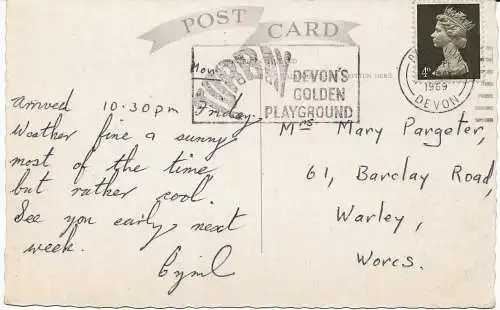 POST CARD
TORBAY
DEVON'S
GOLDEN
PLAYGROUND
4d
1969
DEVON
Friday
Arrived 10.30pm
Weather fine & sunny
most of the time
but rather cool.
See you early next
week.
Cyril
Mrs Mary Pargeter,
61, Barclay Road,
Warley,
Worcs.